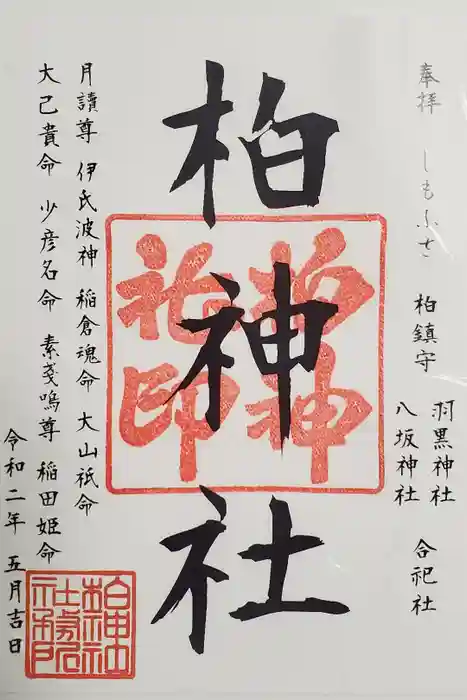 奉拝 しもふさ 柏鎮守
羽黒神社
八坂神社 合祀社
柏神社
柏神
社印
月讀尊 伊氐波神 稲倉魂命 大山祇命
大己貴命 少彦名命 素戔嗚尊 稲田姫命
令和二年 五月吉日
柏神社
社務所
之印